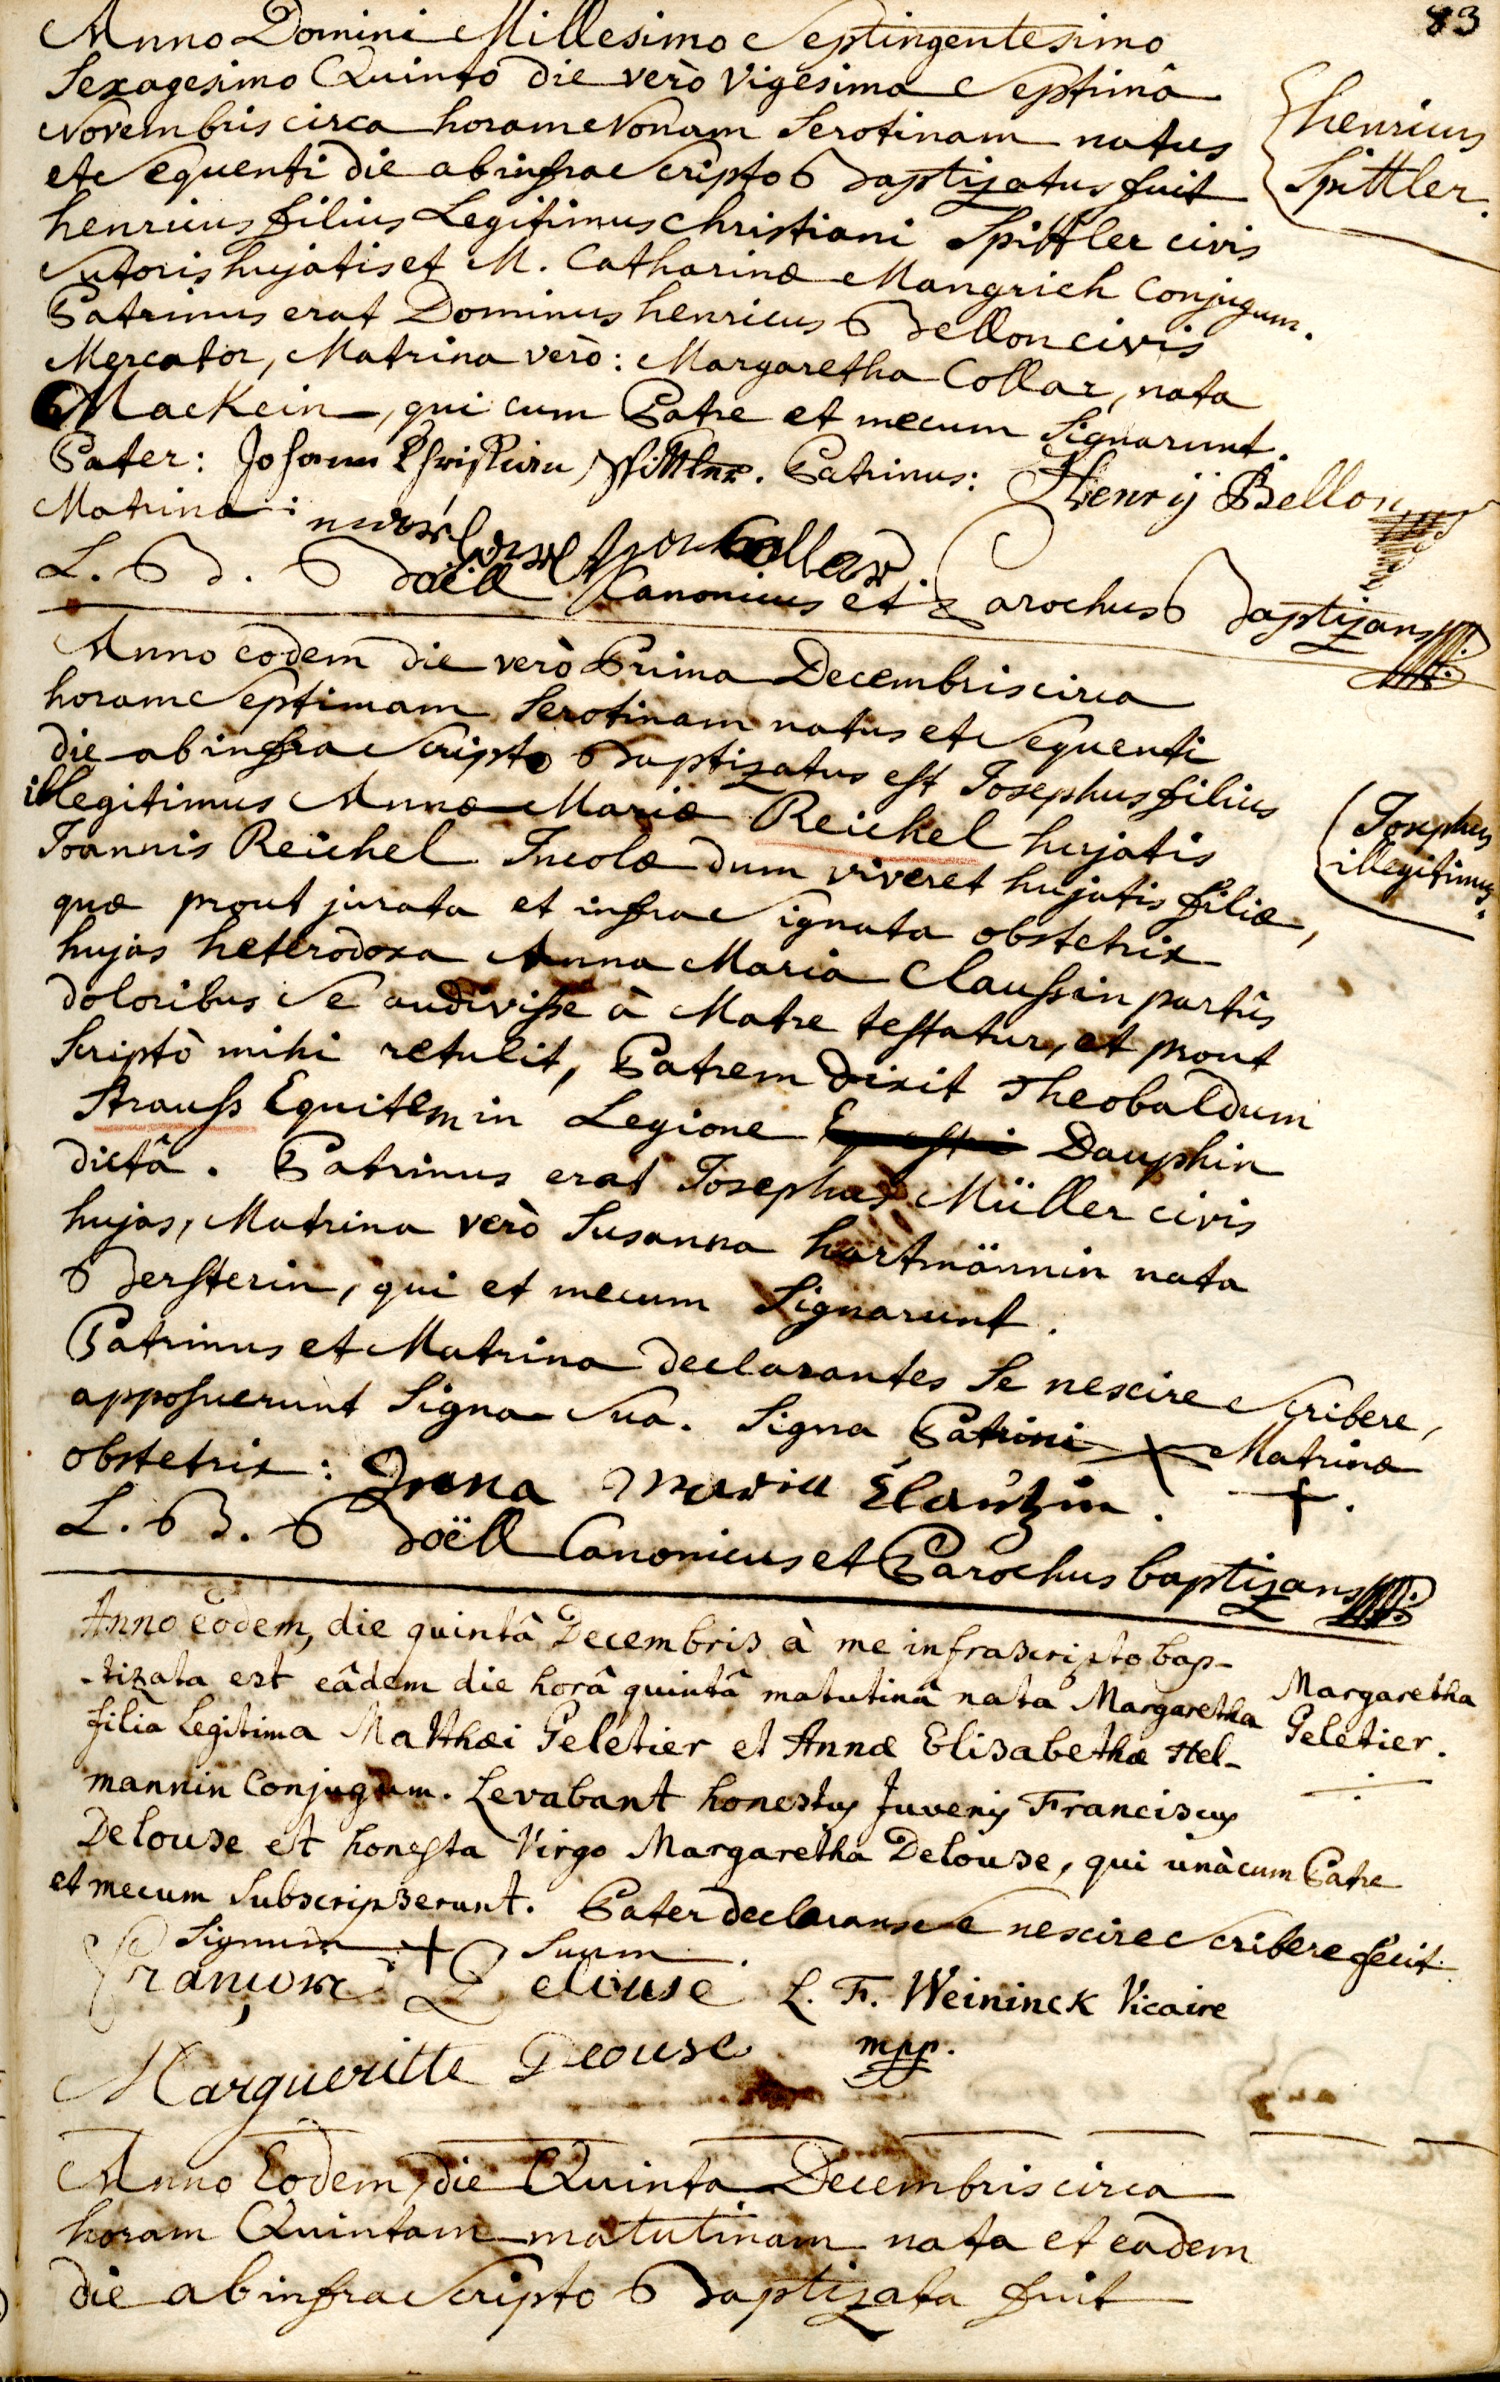 83
Anno Domini Millesimo Septingentesimo
Sexagesimo Quinto die verò Vigesima Septimâ
Novembris circa horam Nonam Serotinam natus
et Sequenti die ab infra Scripto Baptizatus fuit
henricus filius Legitimus Christiani Spittler civis
Sutoris hujatis et M. Catharinæ Mangrich Conjugum.
Patrinus erat Dominus henricus Bellon civis
Mercator, Matrina verò: Margaretha Collar, nata
MacKein, qui cum Patre et mecum Signarunt.
Pater: Johann Christian Spittler. Patrinus: Henrÿ Bellon
Matrina: Collar.
L. B. Boëll Canonicus et Parochus Baptizans
henricus
Spittler.
Anno eodem die verò Prima Decembris circa
horam Septimam Serotinam natus et Sequenti
die ab infra Scripto Baptizatus est Josephus filius
illegitimus Annæ Mariæ Reichel hujatis
Joannis Reichel Incolæ dum viveret hujatis filiæ,
quæ prout jurata et infra Signata obstetrix
hujas heterodoxa Anna Maria Claussin partûs
doloribus Se audivisse à Matre testatur, et prout
Scriptò mihi retulit, Patrem dixit Theobaldum
Strauss Equitem in Legione Dauphin
dictâ. Patrinus erat Josephus Müller civis
hujas, Matrina verò Susanna hartmännin nata
Bersterin, qui et mecum Signarunt.
Patrinus et Matrina declarantes Se nescire Scribere,
apposuerunt Signa Sua. Signa Patrini X Matrinæ
obstetrix: Anna Maria Claußin. +.
L. B. Boëll Canonicus et Parochus baptizans
Josephus
illegitimus.
Anno eodem, die quintâ Decembris à me infrascripto bap-
-tizata est eâdem die horâ quintâ matutinâ nata Margaretha
filia Legitima Matthæi Peletier et Annæ Elisabethæ Hel-
mannin Conjugum. Levabant honestus Juvenis Franciscus
Delouse et honesta Virgo Margaretha Delouse, qui unà cum Patre
et mecum Subscripserunt. Pater declarans Se nescire Scribere fecit
Signum + Suum.
Françoic Delouse L. F. Weininck Vicaire
mpp.
Margueritte Deouse
Margaretha
Peletier.
Anno Eodem, die Quinta Decembris circa
horam Quintam matutinam nata et eadem
die ab infra Scripto Baptizata fuit